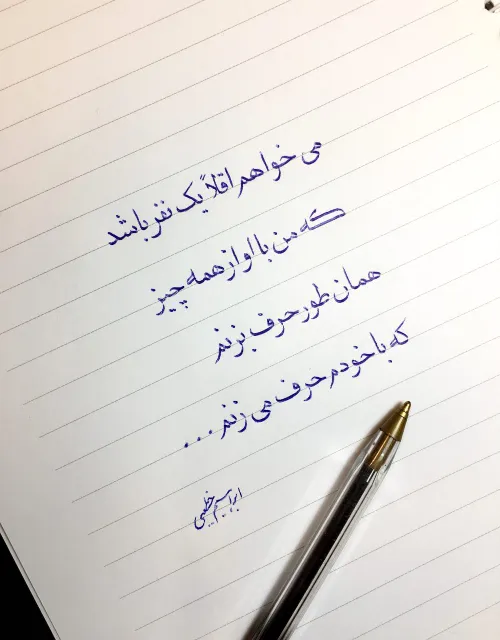 می خواهم اقلاً یک نفر باشد
که من با او از همه چیز
همان طور حرف بزنم
که با خودم حرف می زنم ...
ابراهیم خطیبی